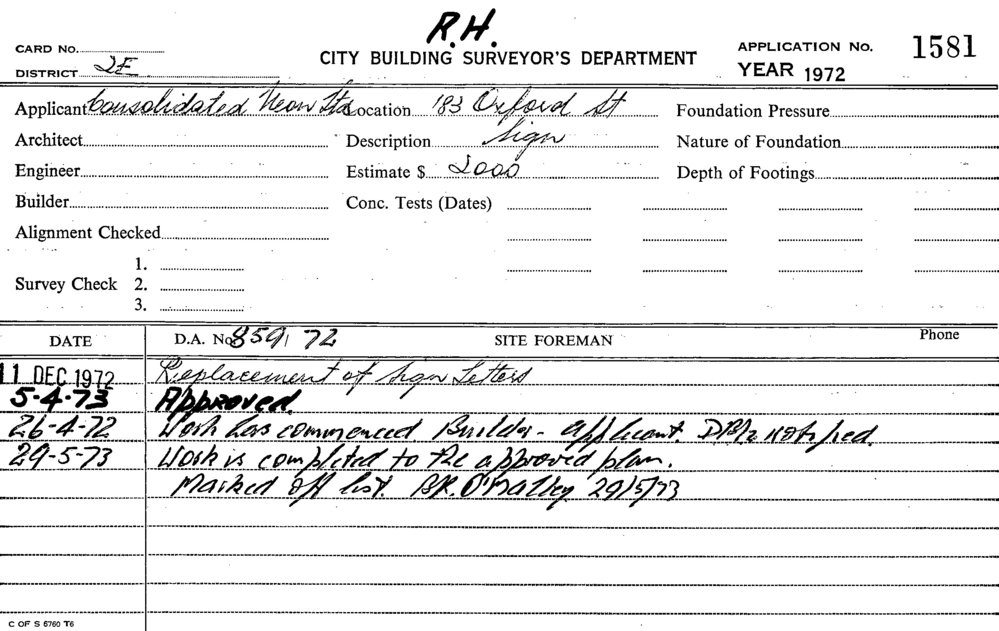 R.H.
CARD No.
CITY BUILDING SURVEYOR'S DEPARTMENT
APPLICATION No. 1581
DISTRICT 2E
YEAR 1972
Applicant Consolidated Neon Ltd Location 183 Oxford St Foundation Pressure
Architect Description Sign Nature of Foundation
Engineer Estimate $ 2000 Depth of Footings
Builder Conc. Tests (Dates)
Alignment Checked
1.
Survey Check 2.
3.
DATE D.A. No 859/72 SITE FOREMAN Phone
11 DEC 1972 Replacement of Sign Letters
5-4-73 Approved.
26-4-72 Work has commenced Builder - applicant. notified.
29-5-73 Work is completed to the approved plan.
Marked off list. 29/5/73
C OF S 6760 T6